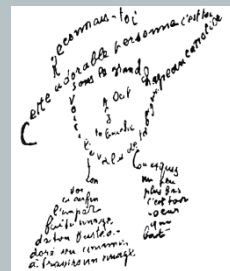 Reconnais-toi
Cette adorable personne c'est toi
sous le grand chapeau canotier
Oeil
ta bouche
ton
cou exquis
voi
ci enfin
l'impar
faite image
de ton buste a
doré vu comme
à travers un nuage
un peu
plus bas
c'est ton
coeur
qui
bat